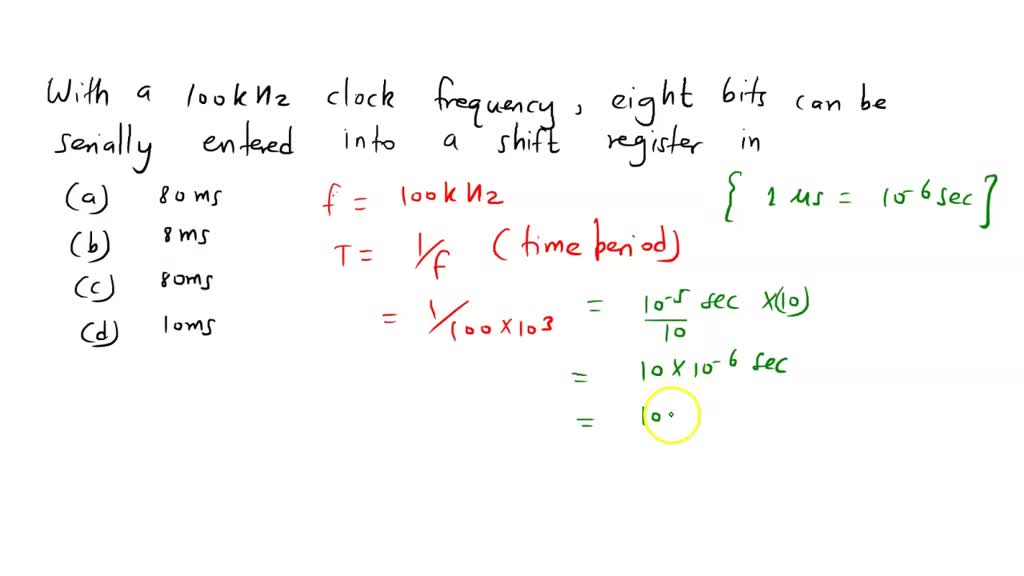 With a 100kHz clock frequency, eight bits can be
serially entered into a shift register in
(a) 80ms
(b) 8ms
(c) 80ms
(d) 10ms
f = 100kHz
T = 1/f (time period)
= 1/100 × 10³
{ 1 μs = 10⁻⁶ sec }
= 10⁻⁵/10 sec ×(10)
= 10 × 10⁻⁶ sec
= 10